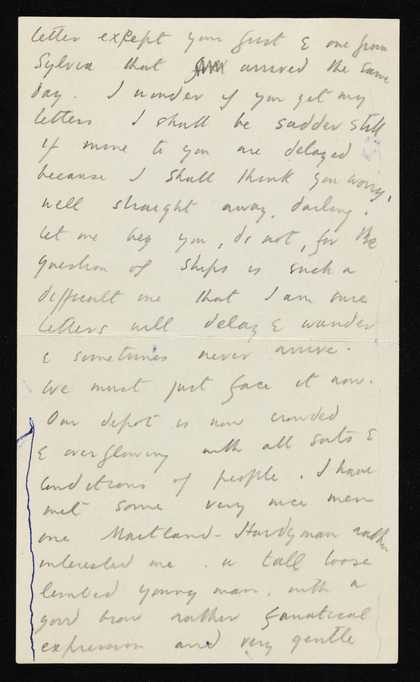 letter except your first & one from
Sylvia that arrived the same
day. I wonder if you get my
letters I shall be sadder still
if mine to you are delayed
because I shall think you worry,
well straight away, darling,
let me beg you, do not, for the
question of ships is such a
difficult one that I am sure
letters will delay & wander
& sometimes never arrive.
We must just face it now.
Our depot is now crowded
& overflowing with all sorts &
conditions of people. I have
met some very nice men
one Maitland-Hardyman rather
interested me. a tall loose
limbed young man. with a
good brow rather fanatical
expression and very gentle